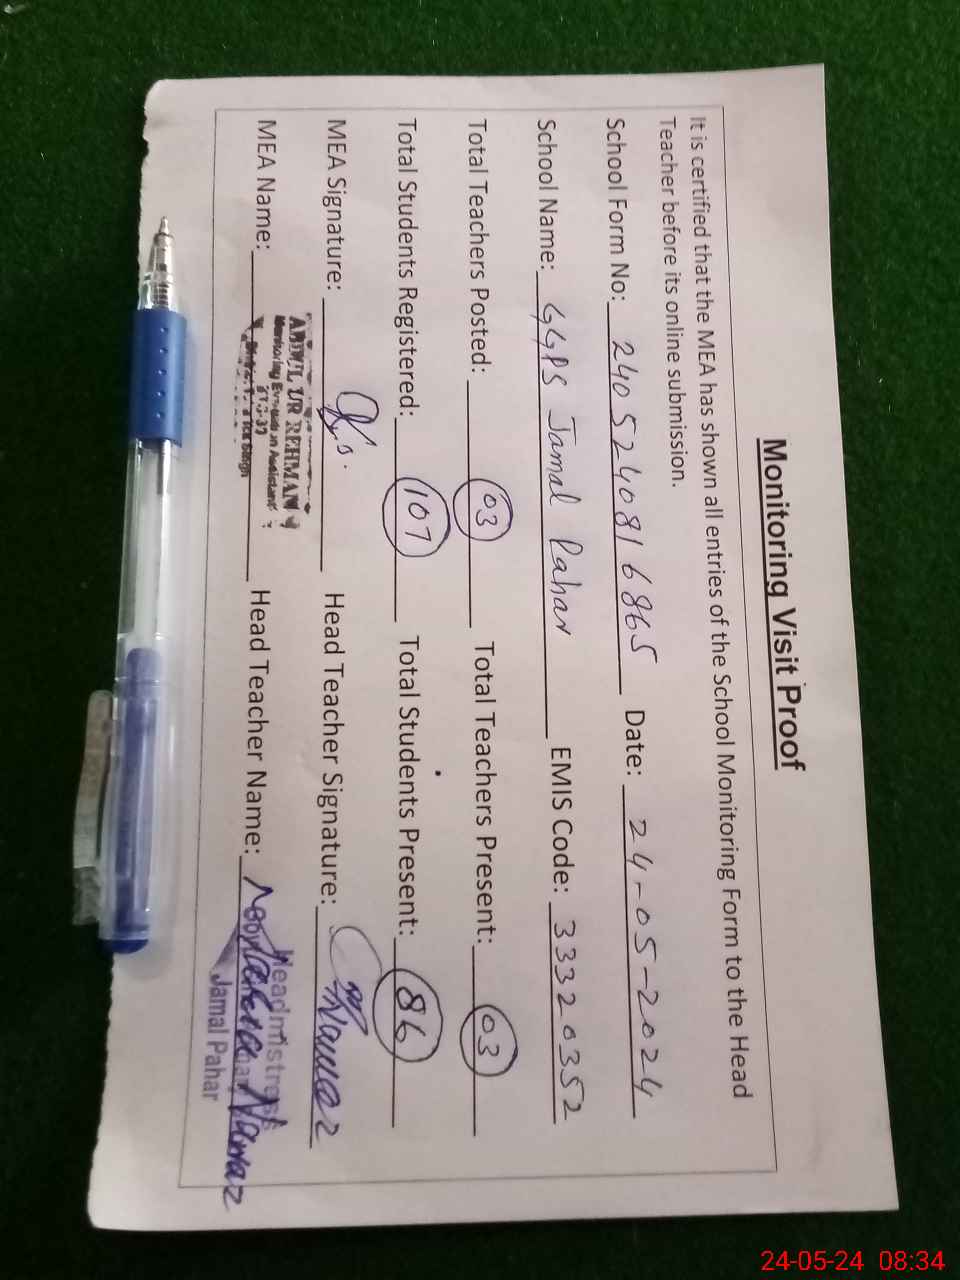 Monitoring Visit Proof
It is certified that the MEA has shown all entries of the School Monitoring Form to the Head
Teacher before its online submission.
School Form No: 2405240816865 Date: 24-05-2024
School Name: GGPS Jamal Pahar EMIS Code: 33320352
Total Teachers Posted: 03 Total Teachers Present: 03
Total Students Registered: 107 Total Students Present: 86
MEA Signature: Head Teacher Signature: Nawaz
MEA Name: Head Teacher Name: Nawaz
UR REHMAN
Headmistress
Jamal Pahar
24-05-24 08:34